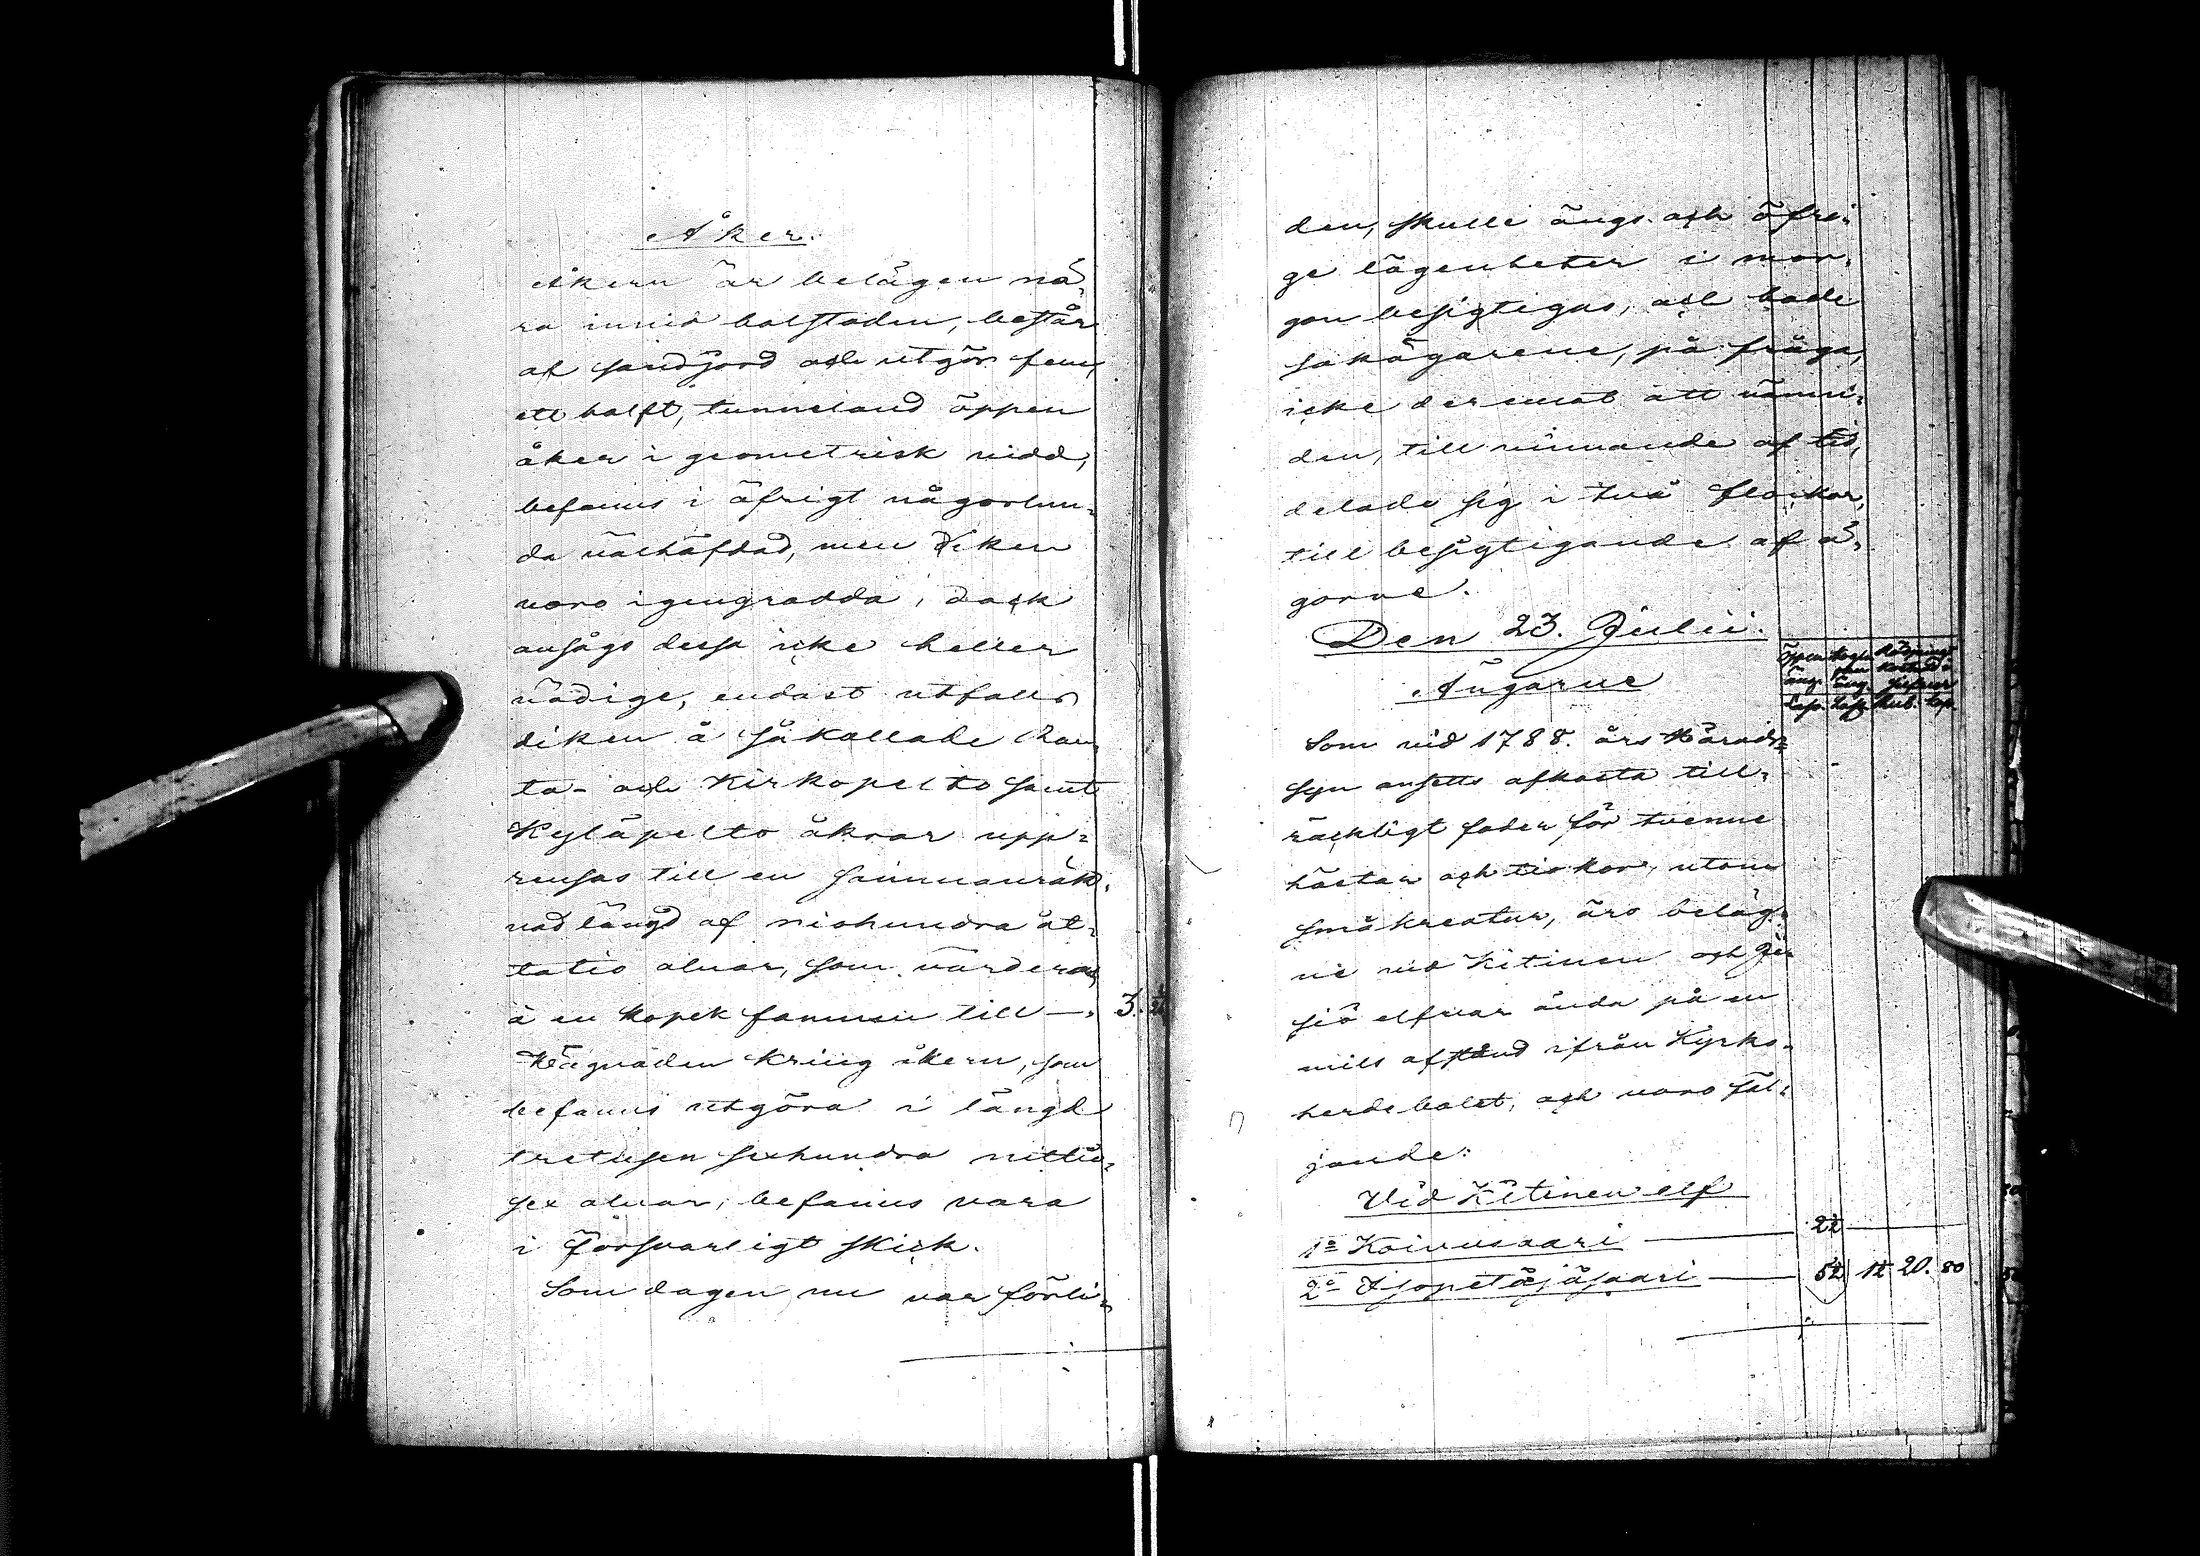 Åker.
Åkern är belägen nä-
ra invid bolstaden, består
af sandjord och utgör fem,
ett halft, tunneland öppen
åker i geometrisk vidd,
befanns i öfrigt någorlun-
da välhäfdad, men diken
voro igengrodda, dock
ansågs dessa icke heller
nödige, endast utfalls
diken å så kallade Ran-
ta- och Kirkopelto samt
Kyläpelto åkrar upp-
rensas till en sammanräk-
nad längd af niohundra åt-
tatio alnar, som värderas
à en kopek famnen till —. 3.
Hägnaden kring åkern, som
befanns utgöra i längd
tretusen sexhundra nittio-
sex alnar, befanns vara
i försvarligt skick.
Som dagen nu var förli-
den, skulle ängs och öfri-
ge lägenheter i mor-
gon besigtigas, och hade
sakägarene, på fråga,
icke deremot att nämn-
den, till vinnande af tid,
delade sig i två flockar,
till besigtigande af ä-
gorne.
Den 23. Julii.
Ängarne
Öppen äng.
äng.
Kapp. Kapp. Rub. kop.
Som vid 1788. års Härads-
syn ansetts afkasta till-
räckligt foder för tvenne
hästar och tio kor, utom
småkreatur, äro beläg-
ne vid Kitinen och Je-
siö elfvar ända på en
mils afstånd ifrån Kyrko-
herdebolet, och voro föl-
jande:
Vid Kitinen elf
1o Koivusaari — 22 —
2o Isopetäjäsaari — 52 12 20. 80